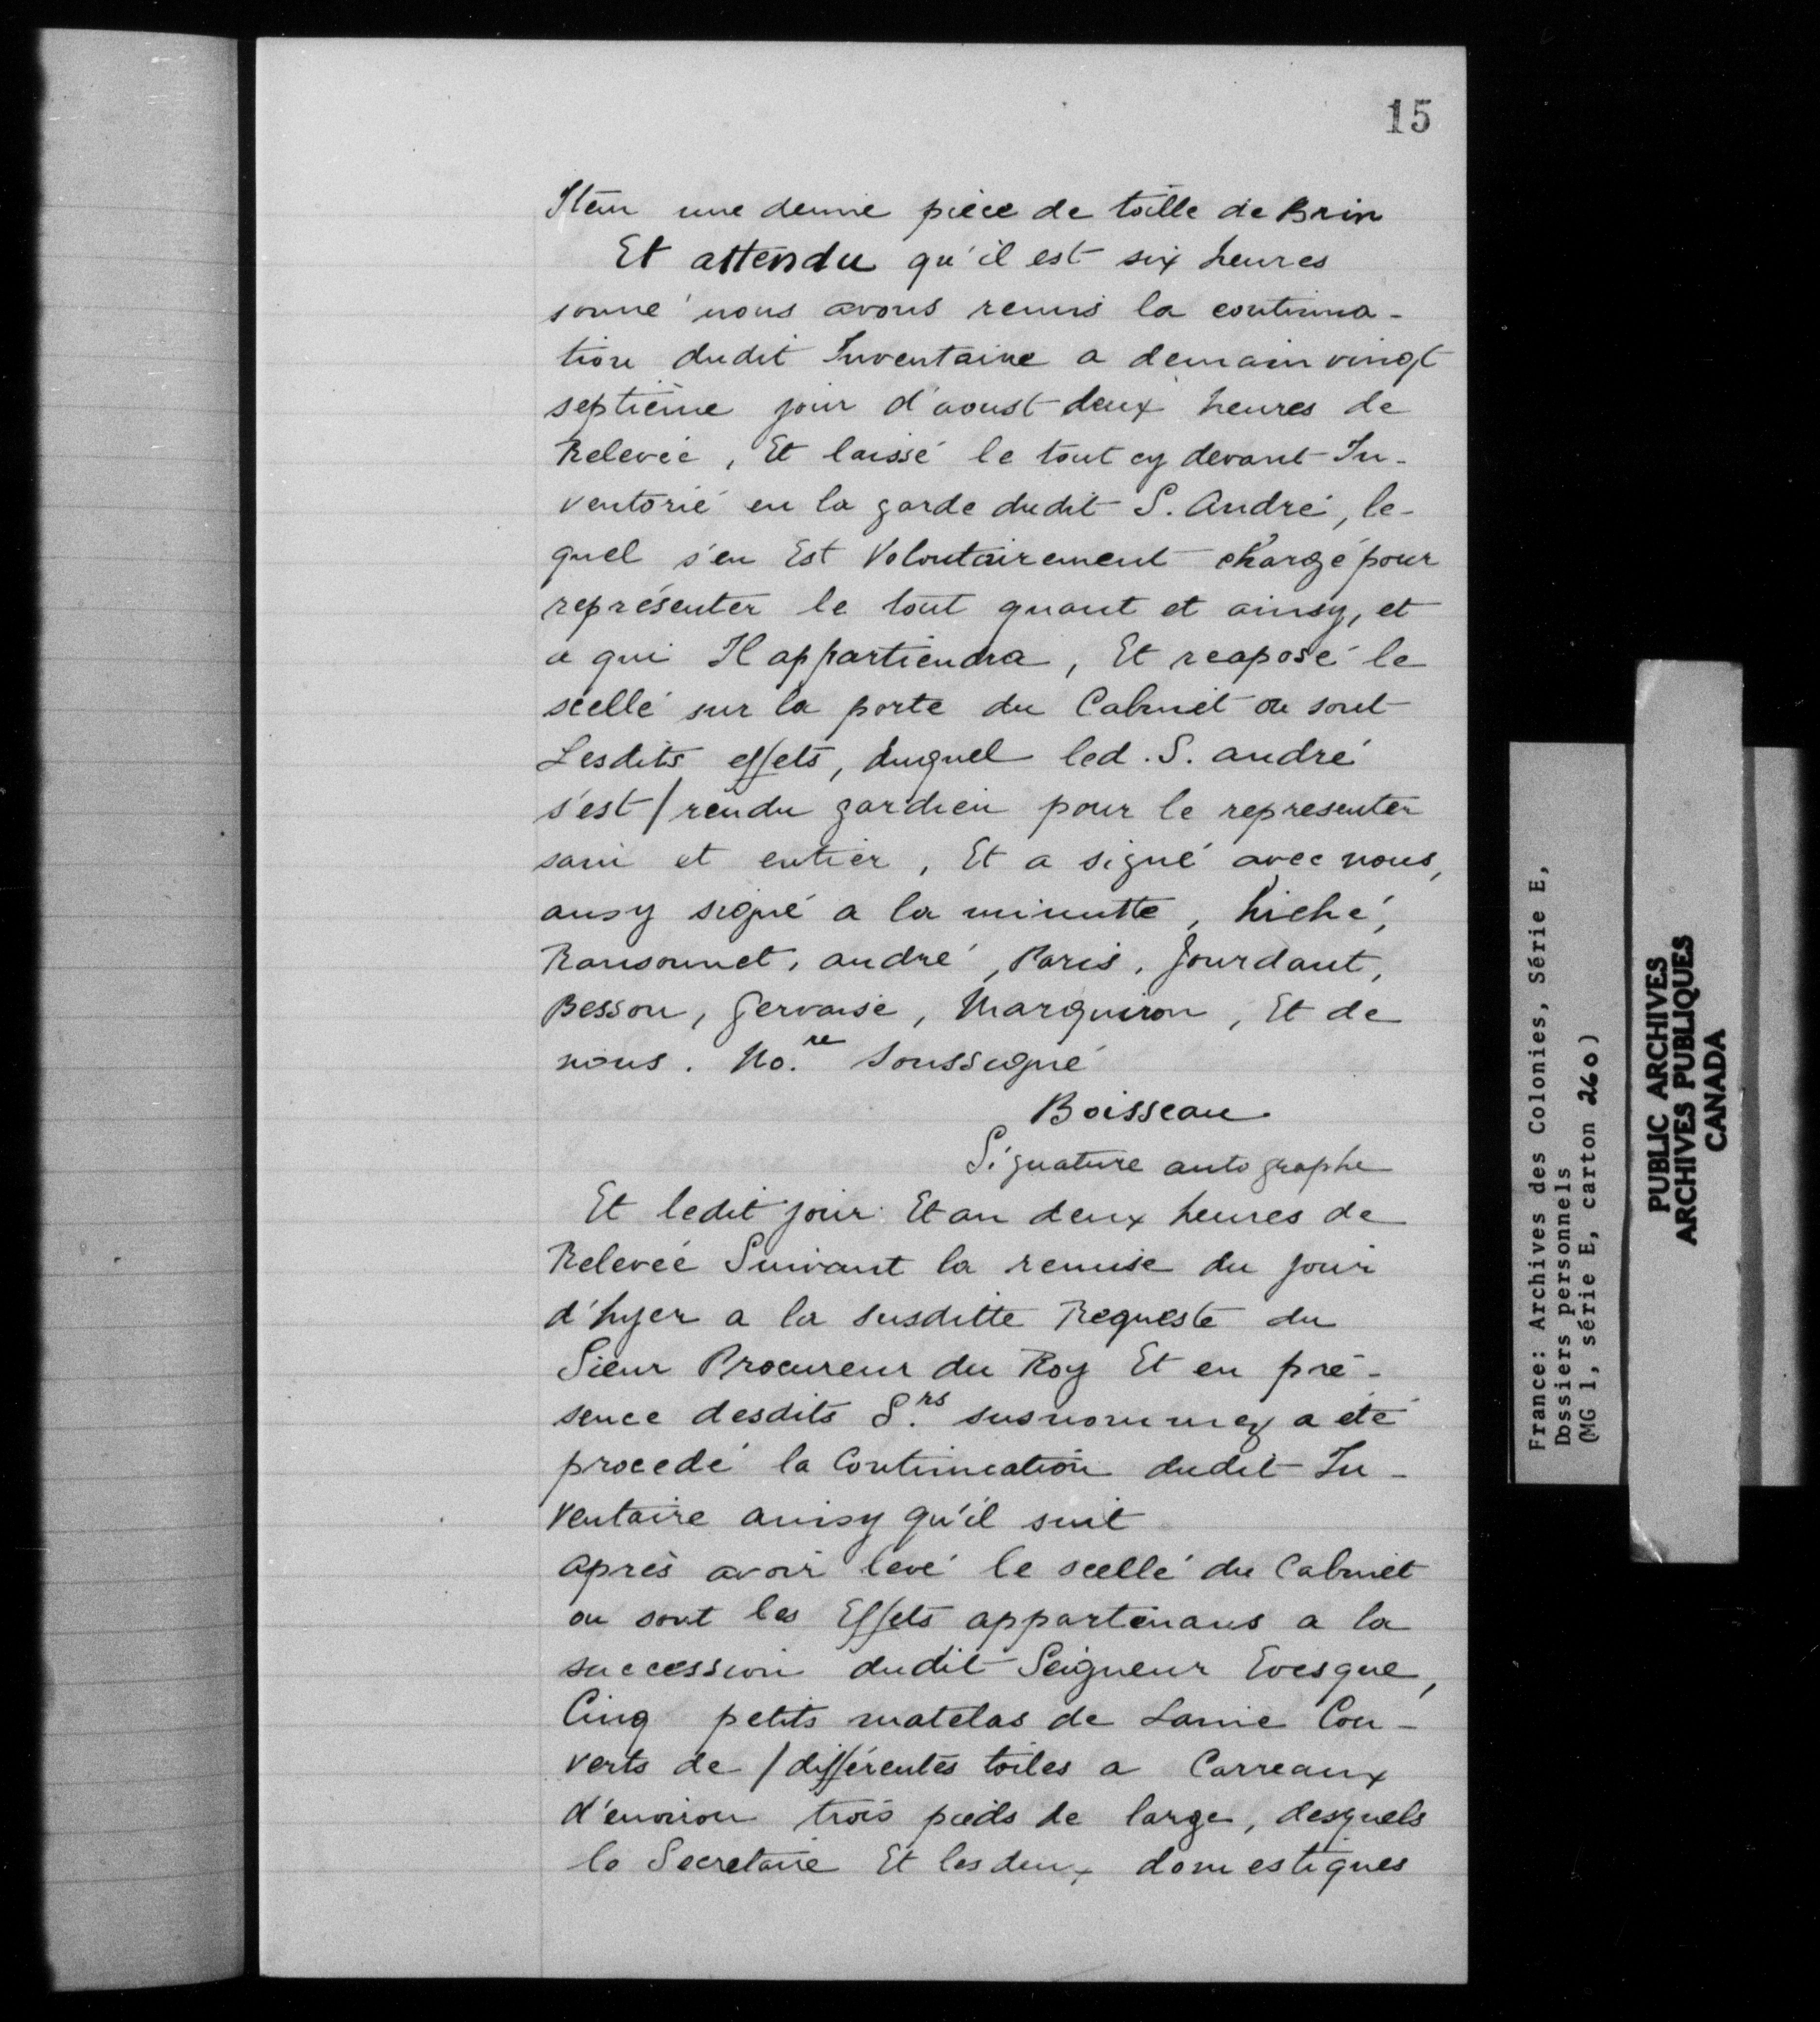 15
Item une demie pièce de toille de Brin
Et attendu qu'il est six heures
sonné nous avons remis la continua-
tion dudit Inventaire a demain vingt
septième jour d'aoust deux heures de
Relevée, Et laissé le tout cy devant In-
ventorié en la garde dudit S. André, le-
quel s'en Est Volontairement chargé pour
représenter le tout quant et ainsy, et
a qui Il appartiendra, Et reaposé le
scellé sur la porte du Cabinet ou sont
Lesdits effets, duquel led. S. andré
s'est / rendu gardien pour le representer
sain et entier, Et a signé avec nous,
ansy signé a la minutte, hiché,
Ransonnet, andré, Paris, Jourdant,
Besson, Gervaise, Marquiron, Et de
nous. No.re Soussigné
Boisseau
Signature autographe
Et ledit jour Et an deux heures de
Relevée Suivant la remise du jour
d'hyer a la susditte Requeste du
Sieur Procureur du Roy Et en pré-
sence desdits S.rs susnommez a été
procedé la Continuation dudit In-
ventaire ainsy qu'il suit
après avoir levé le scellé du Cabinet
ou sont les Effets appartenans a la
succession dudit Seigneur Evesque,
Cinq petits matelas de Laine Cou-
verts de / différentes toiles a Carreaux
d'environ trois pieds de large, desquels
le Secretaire Et les deux domestiques
France: Archives des Colonies, Série E,
Dossiers personnels
(MG 1, série E, carton 260)
PUBLIC ARCHIVES
ARCHIVES PUBLIQUES
CANADA